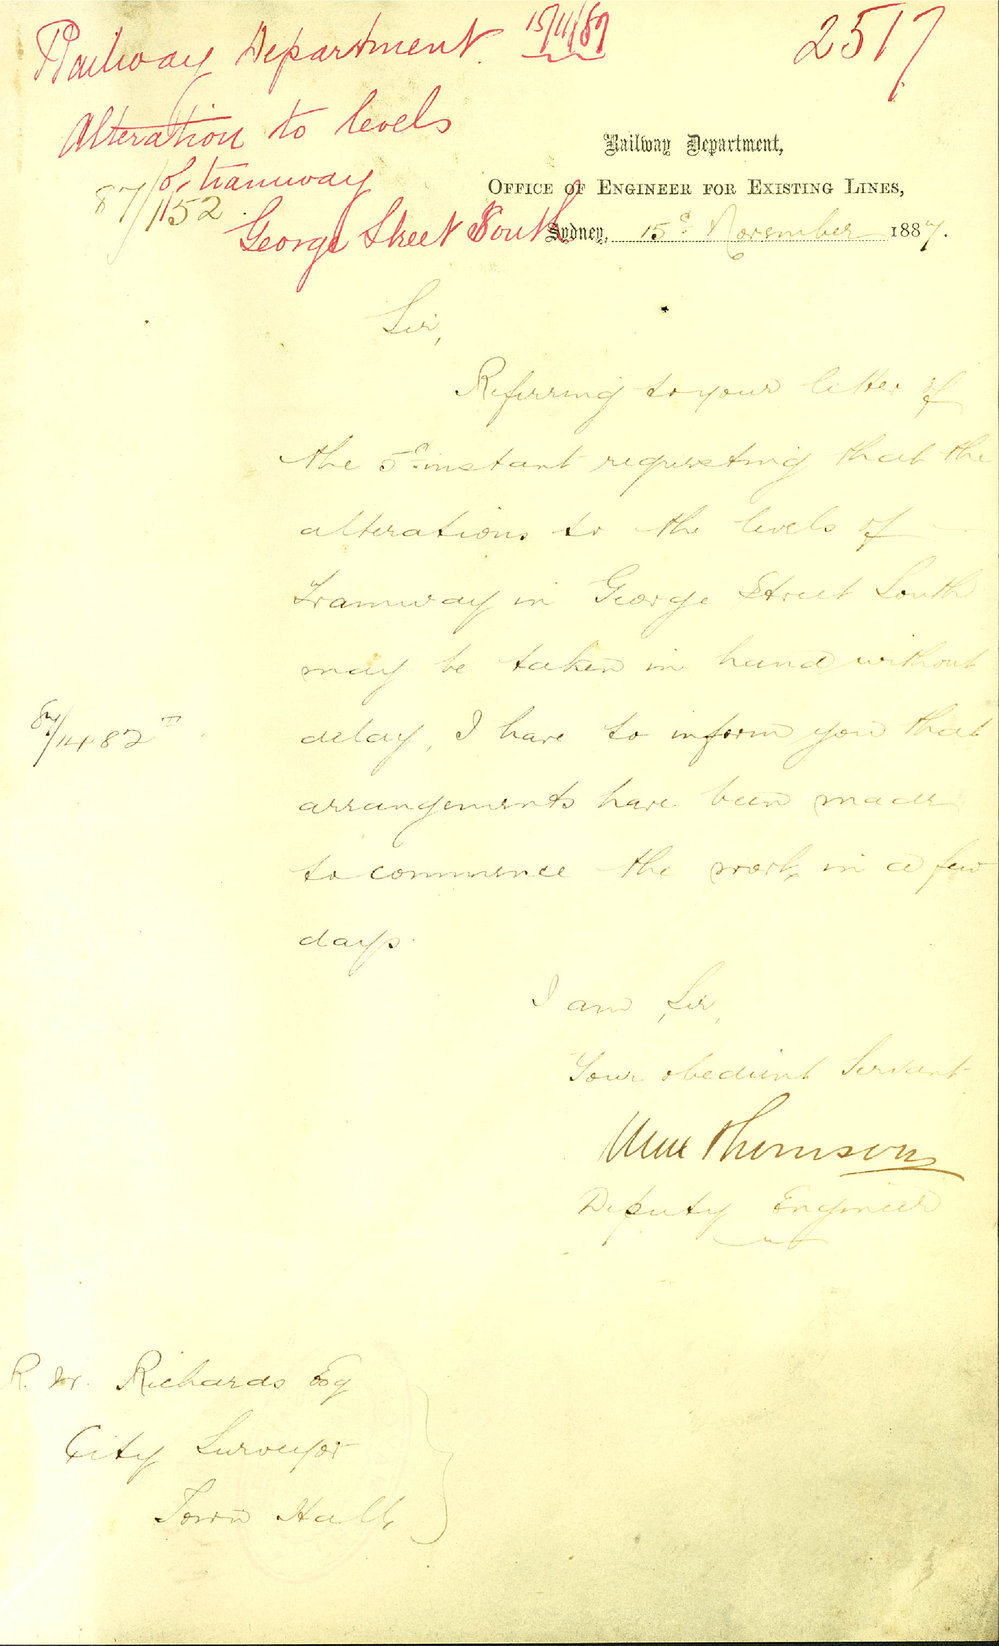 Railway Department. 15/11/87
2517
Alteration to levels
of tramway
George Street South
87/1152
Railway Department,
OFFICE OF ENGINEER FOR EXISTING LINES,
Sydney, 15th November 1887.
Sir,
Referring to your letter of
the 5th instant requesting that the
alterations to the levels of
Tramway in George Street South
may be taken in hand without
delay, I have to inform you that
arrangements have been made
to commence the work in a few
days.
I am, Sir,
Your obedient Servant
Wm Thomson
Deputy Engineer
R. W. Richards Esq
City Surveyor
Town Hall